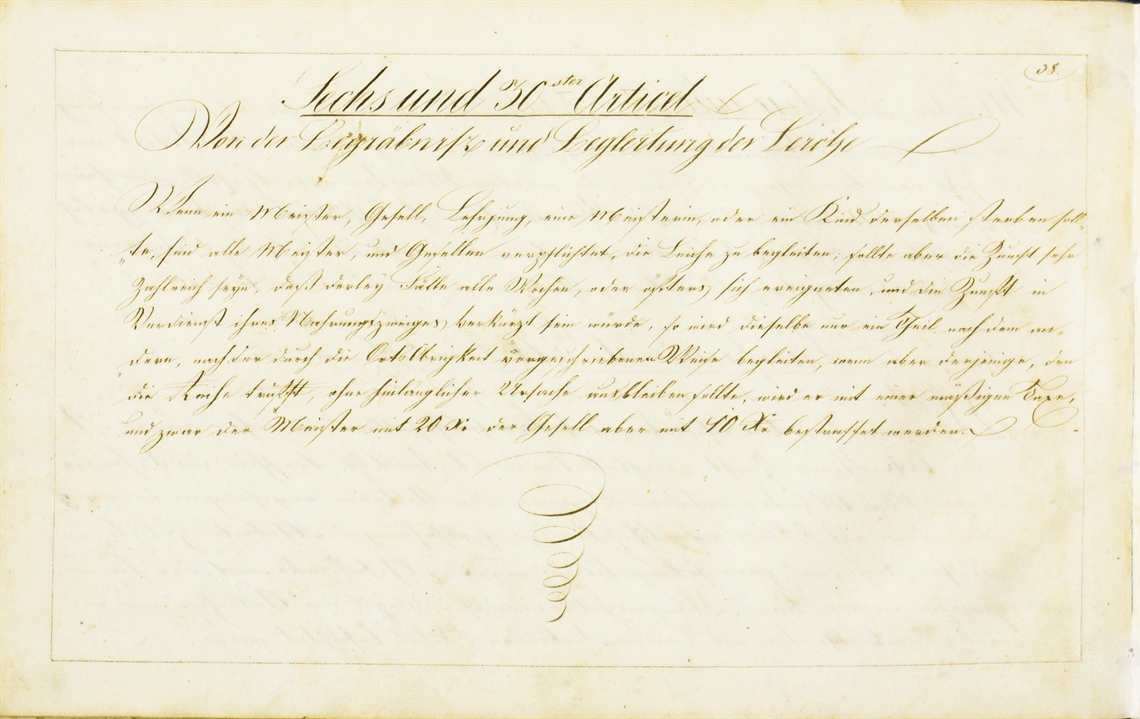 38.
Sechs und 30ster Articel
Von der Begräbniß und Begleitung der Leiche
Wenn ein Meister, Gesell, Lehrjung, eine Meisterin, oder ein Kind derselben sterben soll-
te, sind alle Meister, und Gesellen verpflichtet, die Leiche zu begleiten; sollte aber die Zunft sehr
Zahlreich seyn, daß derley Fälle alle Wochen, oder öfters sich ereigneten, und die Zunft in
Verdienst ihres Nahrungszweiges verkürzt sein würde, so wird dieselbe nur ein Theil nach dem an-
dern, nach der durch die Ortsobrigkeit vorgeschriebenen Weise begleiten, wenn aber derjenige, den
die Reihe trifft, ohne hinlänglicher Ursache ausbleiben sollte, wird er mit einer mäßigen Taxe,
und zwar der Meister mit 20 Xr der Gesell aber mit 10 Xr bestraffet werden.